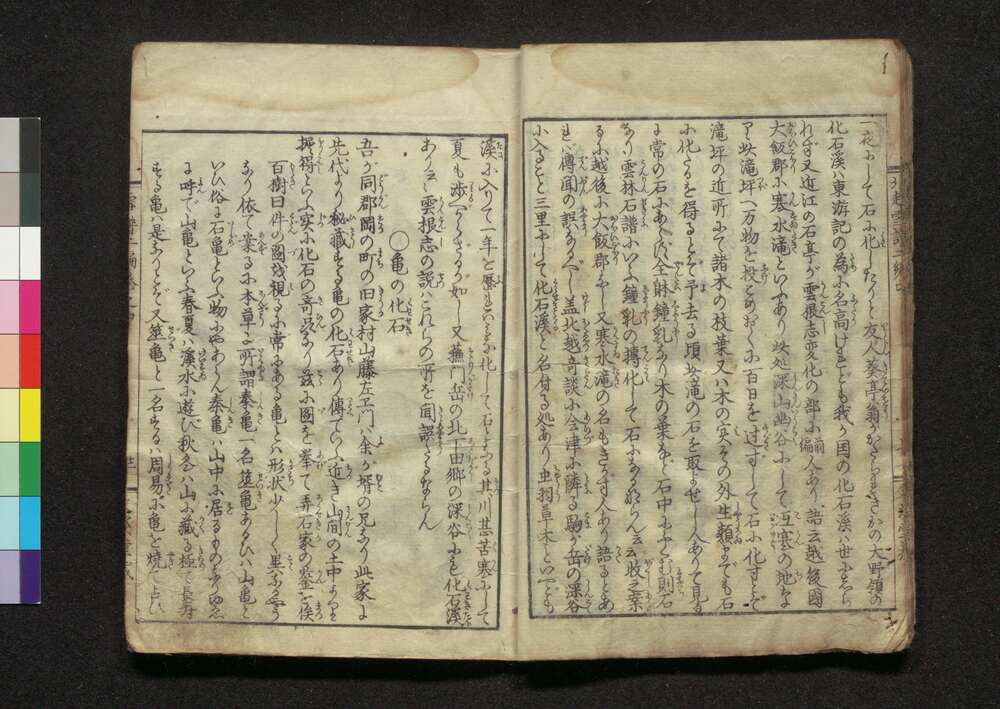 一夜にして石に化したりと友人葵亭翁がかたられきさかの大野領の
化石渓ハ東游記の為に名高けれども我が国の化石渓ハ世にしら
れず又近江の石亭が雲根志変化の部に
人あり語云越後国
大飯郡に寒水滝といふあり此処深山幽谷にして沍寒の地なり
此滝坪へ万物を投こめおくに百日を過ずして石に化すとぞ
滝坪の近所にて諸木の枝葉又ハ木の実その外生類までも石
に化たるを得るとぞ予去る頃此滝の石を取よせし人ありて見る
に常の石にあらず全躰鐘乳なり木の葉など石中にふくむ則石
なり雲林石譜にいふ鐘乳の搏化して石になるならん云云牧之案
るに越後に大飯郡なし又寒水滝の名もきかず人あり語るとあ
れバ伝聞の誤なるべし盖北越奇談に会津に隣る駒が岳の深谷
に入ること三里にして化石渓と名付る処あり虫羽草木といへども
渓に入りて一年を歴れバみな化して石となる其川甚苦寒にして
夏も渉べからざるが如し又蕪門岳の北下田郷の深谷にも化石渓
ありと云云雲根志の説ハこれらの所を聞誤たるならん
○亀の化石
吾が同郡岡の町の旧家村山藤左エ門ハ余が壻の兄なり此家に
先代より秘蔵する亀の化石あり伝ていふ近き山間の土中より
掘得たりとぞ実に化石の奇品なり茲に図を挙て弄石家の鑒を俟
百樹曰件の図を視るに常にある亀とハ形状少しく異なるやう
なり依て案るに本草に所謂秦亀一名筮亀あるひハ山亀と
いひ俗に石亀といふ物にやあらん秦亀ハ山中に居るものなるゆゑ
に呼で山亀といふ春夏ハ渓水に遊び秋冬ハ山に蔵る極て長寿
する亀ハ是なりとぞ又筮亀と一名するハ周易に亀を焼て占ひ